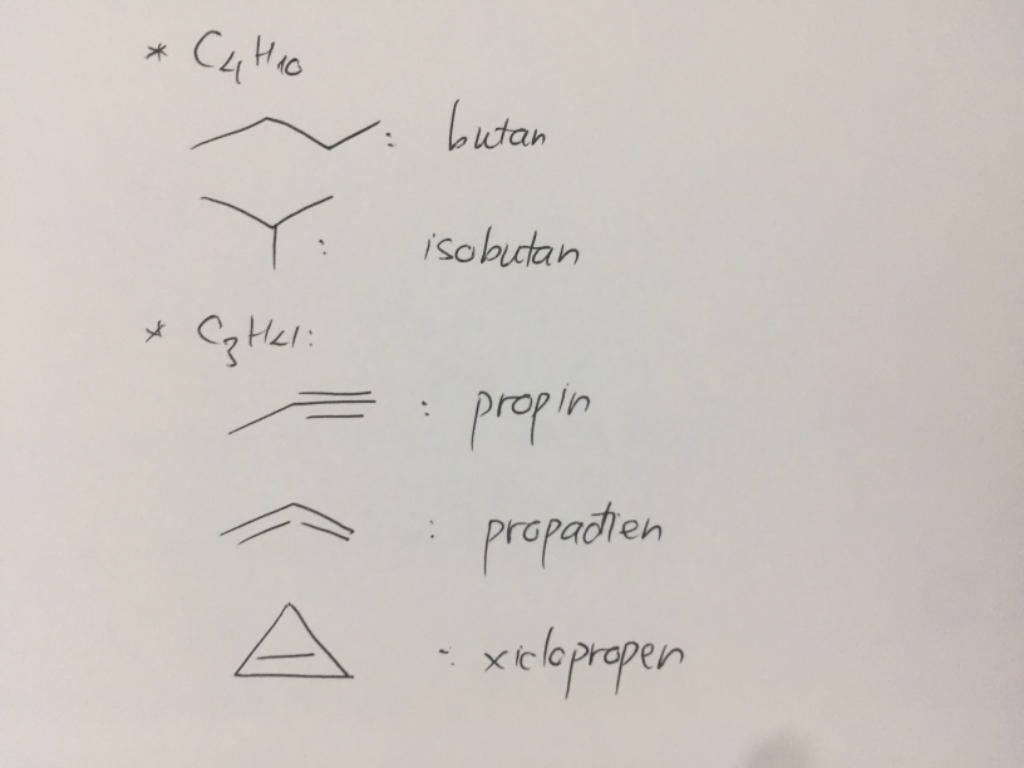 * C₄H₁₀
: butan
: isobutan
* C₃H₄:
: propin
: propađien
: xiclopropen